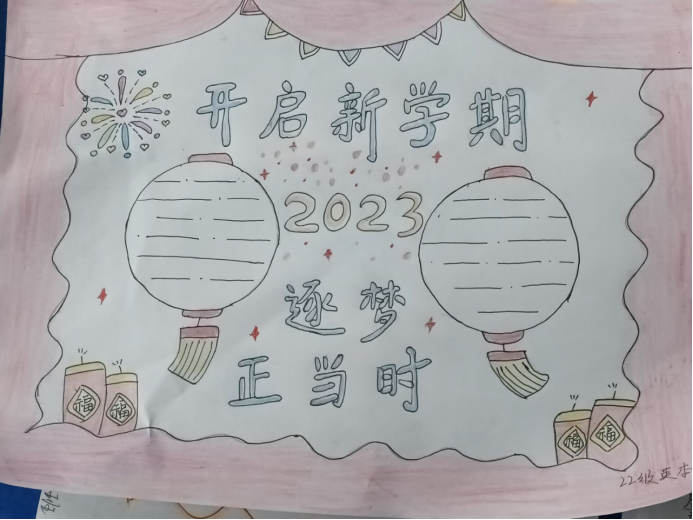 开启新学期
2023
逐梦
正当时
福
福
福
福
22级